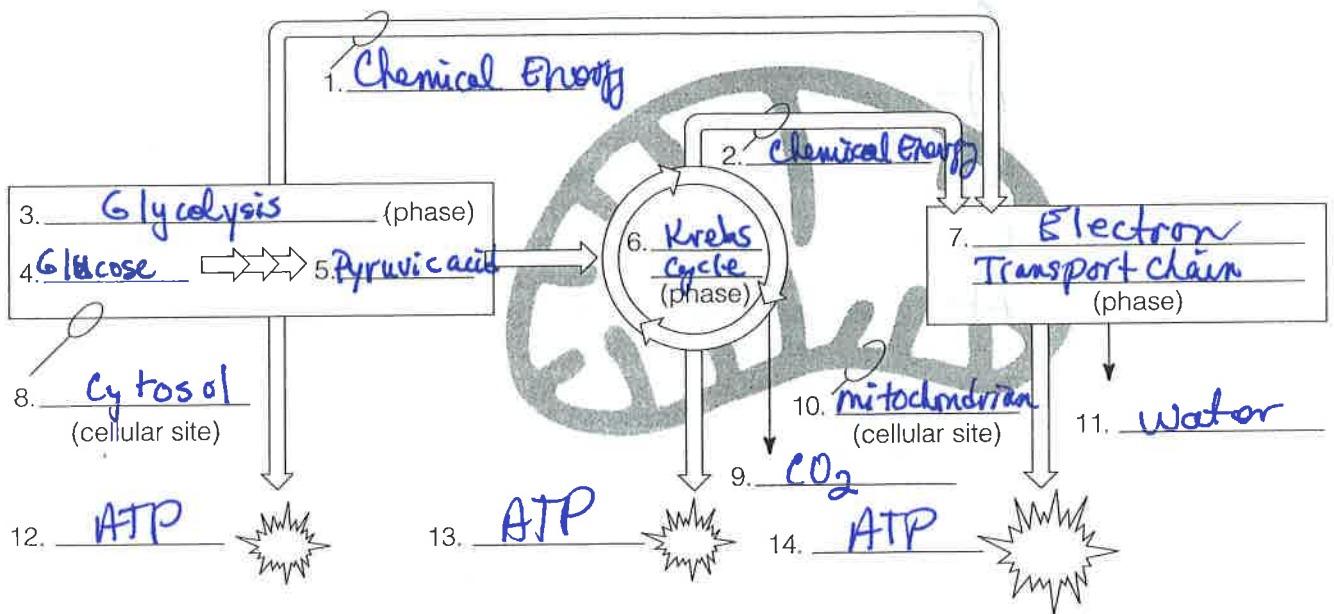 1. Chemical Energy
2. Chemical Energy
3. Glycolysis (phase)
4. Glucose 5. Pyruvic acid
6. Krebs
Cycle
(phase)
7. Electron
Transport Chain
(phase)
8. Cytosol
(cellular site)
10. mitochondrian
(cellular site)
11. Water
9. CO₂
12. ATP
13. ATP
14. ATP